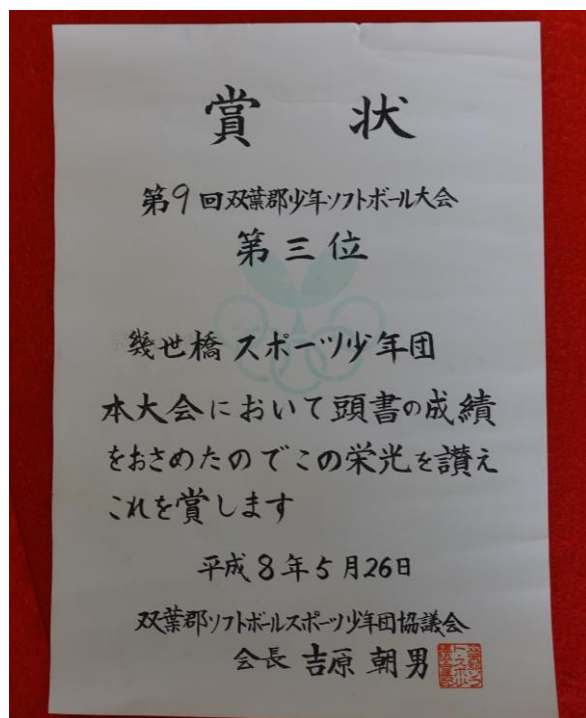 賞 状
第9回双葉郡少年ソフトボール大会
第三位
幾世橋 スポーツ少年団
本大会において頭書の成績
をおさめたのでこの栄光を讃え
これを賞します
平成8年5月26日
双葉郡ソフトボールスポーツ少年団協議会
会長 吉原 朝男